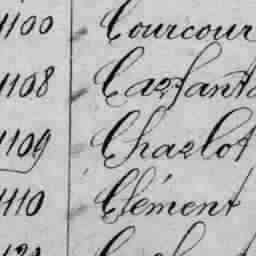 1100 Courcour
1108 Cazfant
1109 Chazlot
1110 Clément